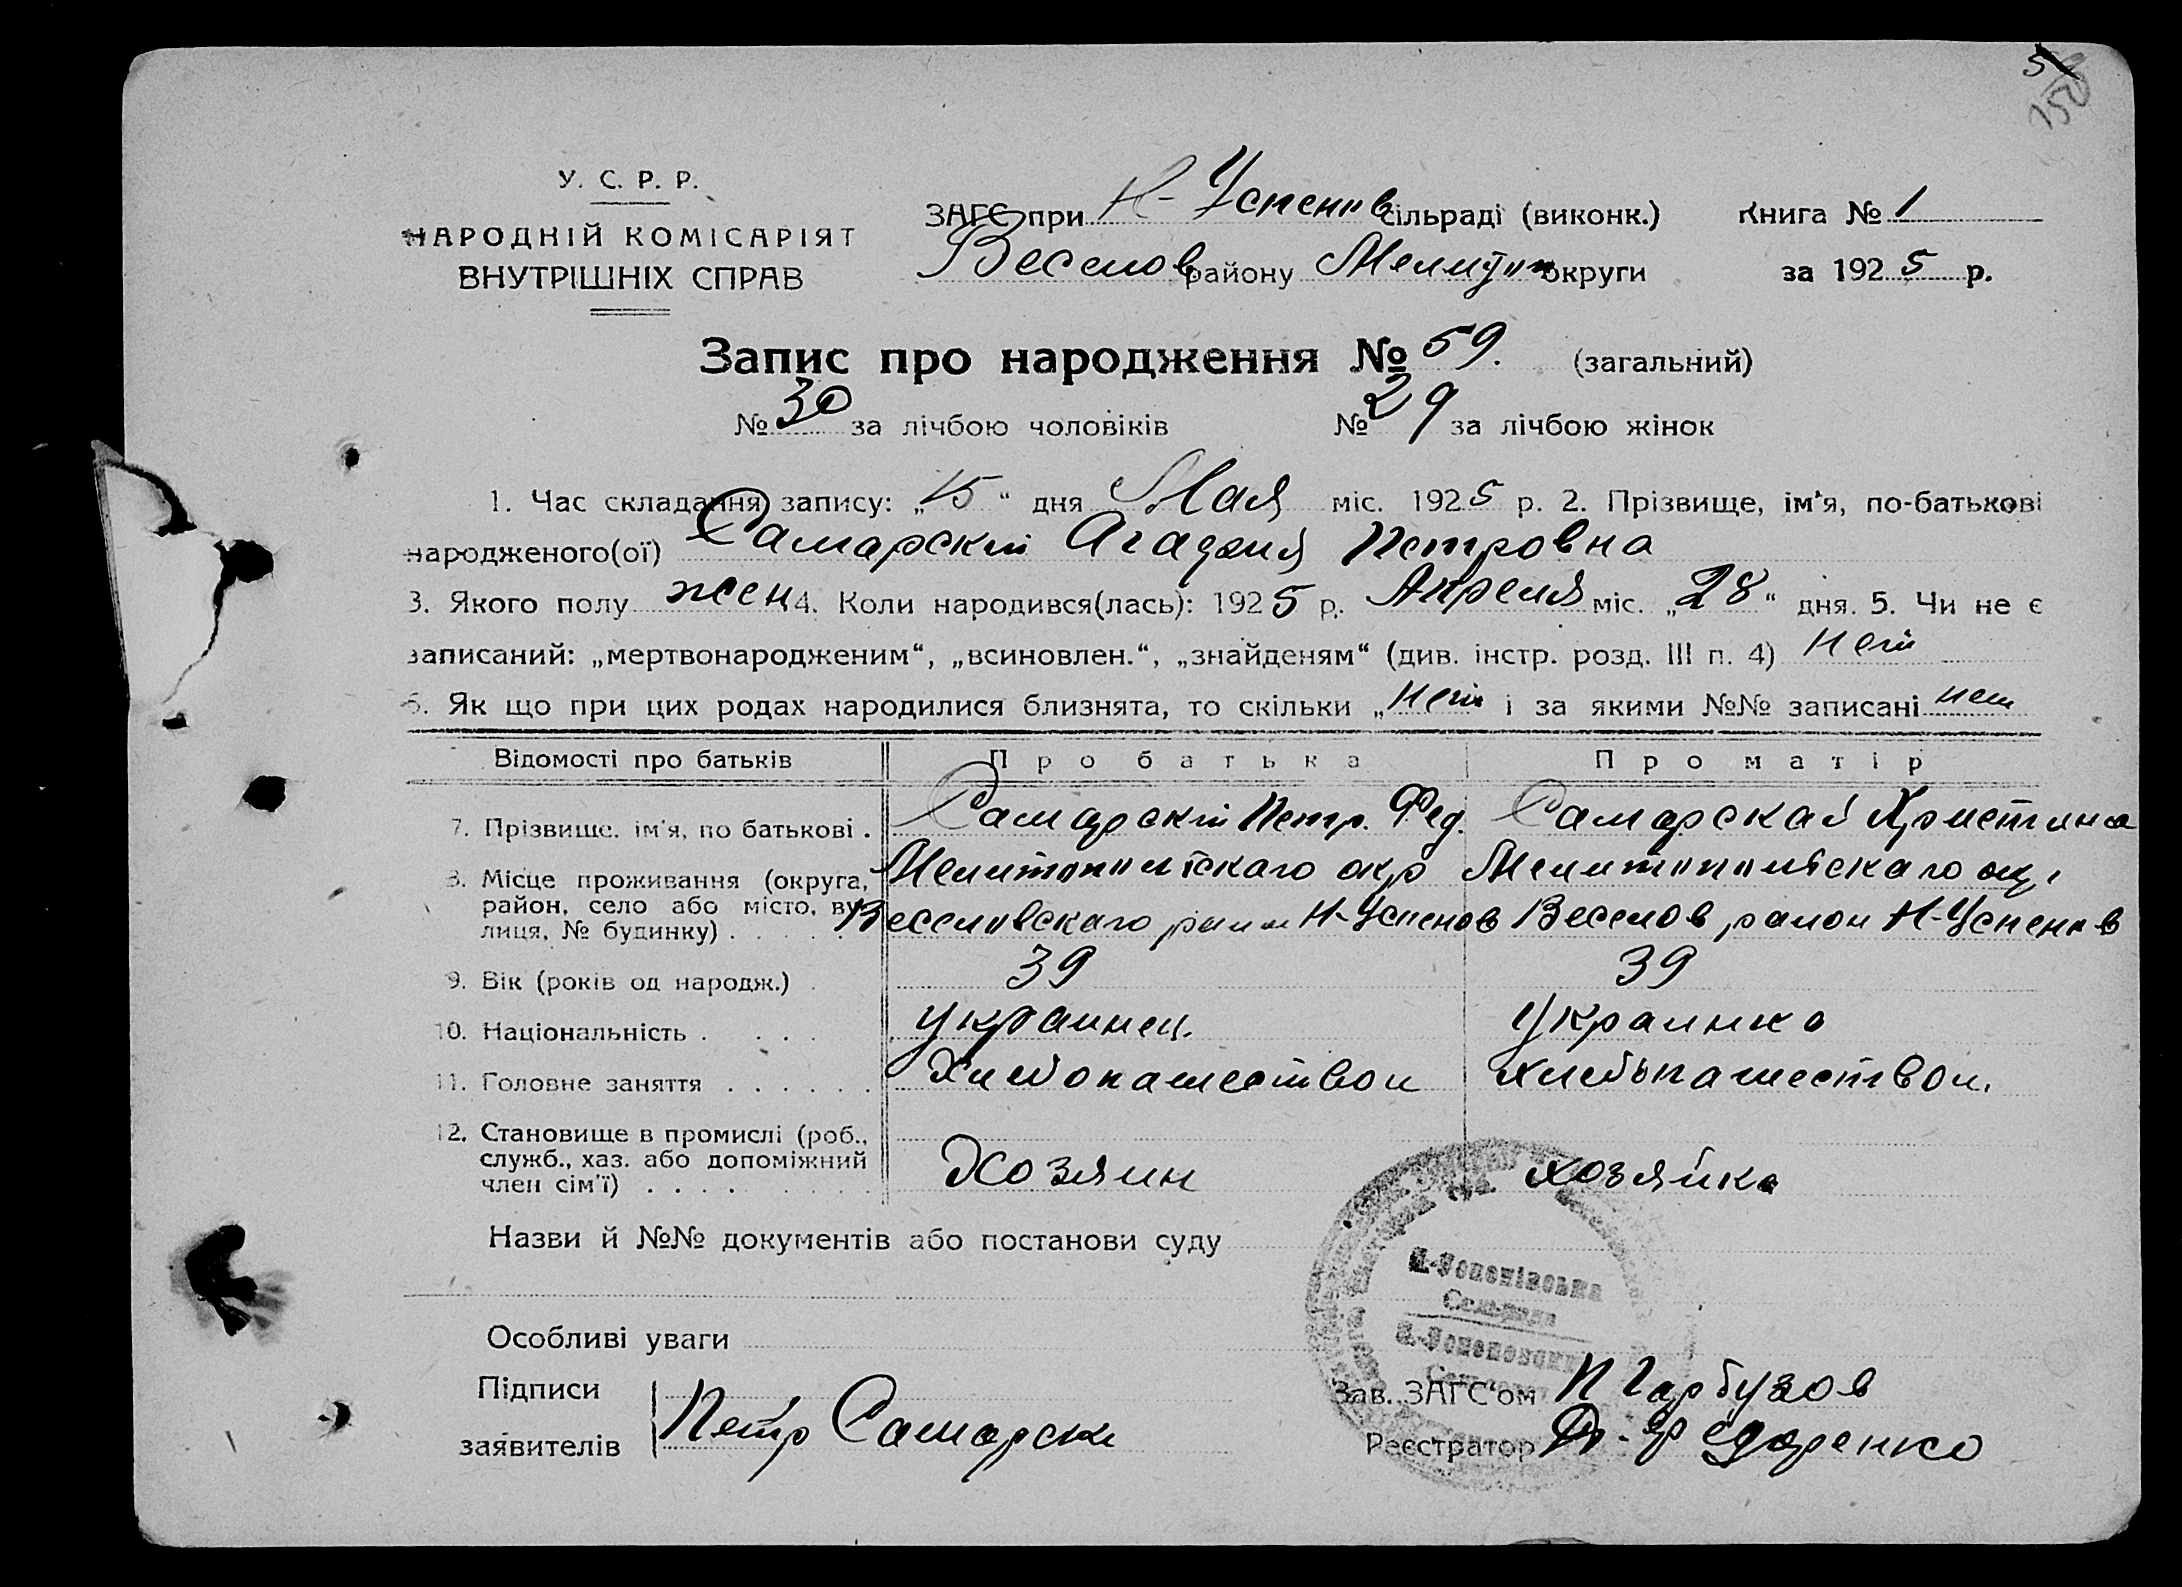 5
150
У. С. Р. Р.
НАРОДНІЙ КОМІСАРІЯТ
ВНУТРІШНІХ СПРАВ
ЗАГС при Н-Успенов сільраді (виконк.) Книга № 1
Веселов району Мелитоп округи за 1925 р.
Запис про народження № 59. (загальний)
№ 30 за лічбою чоловіків № 29 за лічбою жінок
1. Час складання запису: „15“ дня Мая міс. 1925 р. 2. Прізвище, ім’я, по-батькові
народженого(ої) Самарский Агафия Петровна
3. Якого полу жен 4. Коли народився(лась): 1925 р. Апреля міс. „28“ дня. 5. Чи не є
записаний: „мертвонародженим“, „всиновлен.“, „знайденям“ (див. інстр. розд. III п. 4) нет
6. Як що при цих родах народилися близнята, то скільки „нет і за якими №№ записані нет
Відомості про батьків Про батька Про матір
7. Прізвище, ім’я, по батькові . Самарский Петр. Фед. Самарская Христина
8. Місце проживання (округа, район, село або місто, вулиця, № будинку) . Мелитопольскаго окр Мелитопольскаго окр
Веселовскаго район Н-Успенов Веселов район Н-Успенов
9. Вік (років од народж.) . 39 39
10. Національність . . . . украинец. Украинка
11. Головне заняття . . . . . . Хлебопашеством хлебопашеством.
12. Становище в промислі (роб., служб., хаз. або допоміжний член сім’ї) . . . . Хозяин хозяйка
Назви й №№ документів або постанови суду
Н.-Успенівська
Сельрада
Н.-Успеновский
Особливі уваги
Підписи заявителів Петр Самарски
Зав. ЗАГС‘ом П Гарбузов
Реєстратор Федоренко